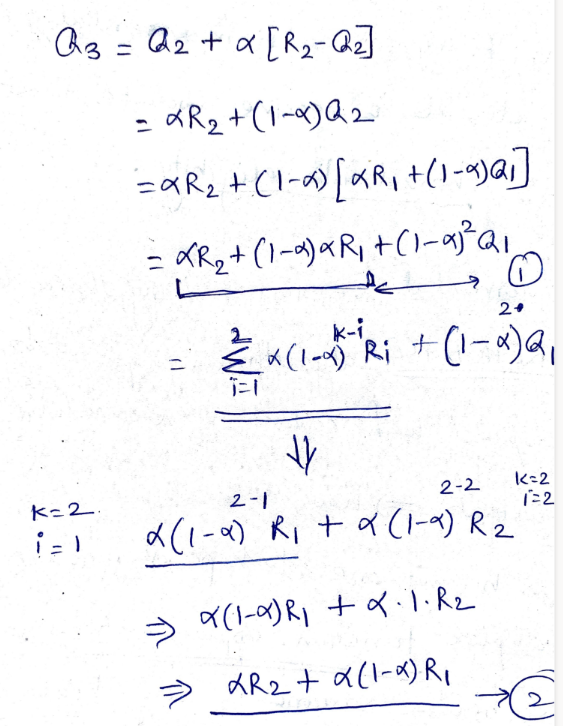 Q₃ = Q₂ + α [R₂-Q₂]
= αR₂ + (1-α)Q₂
= αR₂ + (1-α) [αR₁ + (1-α)Q₁]
= αR₂ + (1-α)αR₁ + (1-α)²Q₁ ①
= Σ_{i=1}^{2} α(1-α)^{k-i} Ri + (1-α)^{2} Q₁
⇓
k=2
i=1
α(1-α)^{2-1} R₁ + α(1-α)^{2-2} R₂
k=2
i=2
⇒ α(1-α)R₁ + α.1.R₂
⇒ αR₂ + α(1-α)R₁ → ②